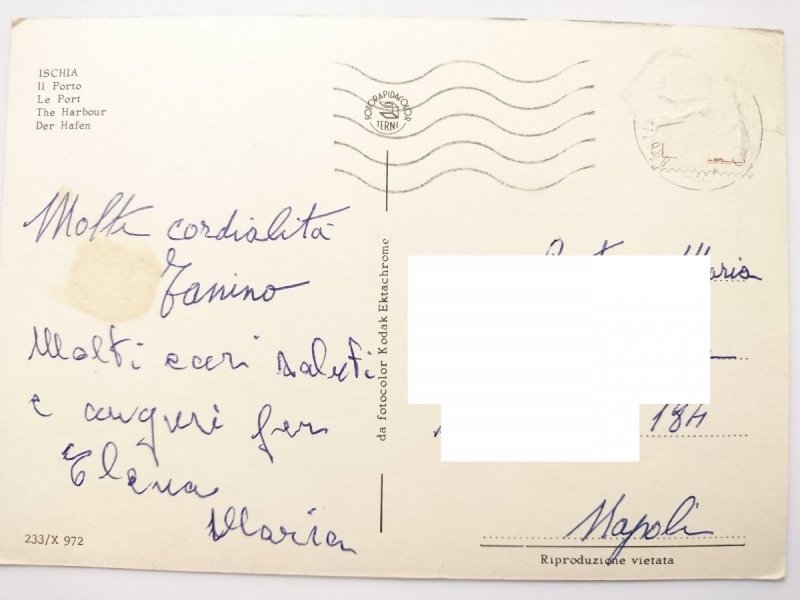 ISCHIA
Il Porto
Le Port
The Harbour
Der Hafen
FOTORAPIDACOLOR
TERNI
Molte cordialità
Tanino
Molti cari saluti
e auguri per
Elena
Maria
233/X 972
da fotocolor Kodak Ektachrome
Maria
184
Napoli
Riproduzione vietata